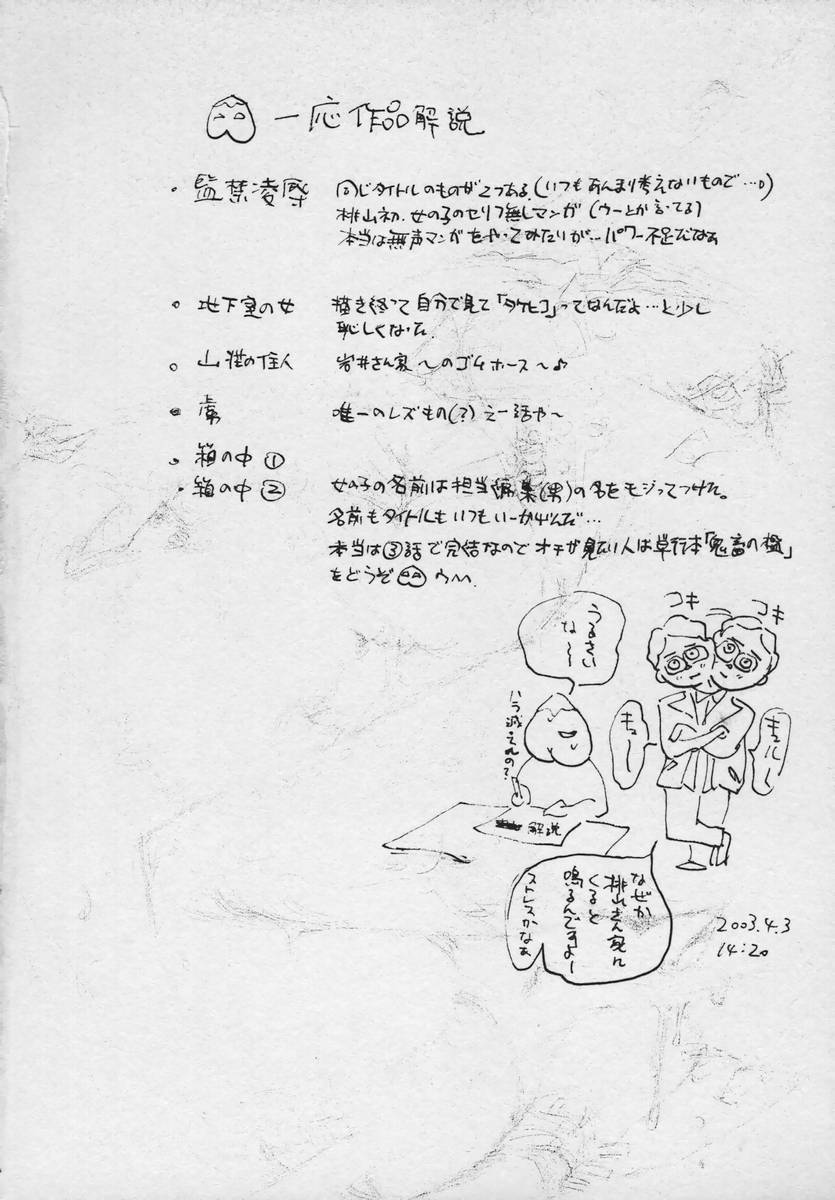 一応作品解説
・監禁凌辱 同じタイトルのものが2つある。(いつもあんまり考えないもので…。)
桃山初、女の子のセリフ無しマンガ(ウーとか言ってる)
本当は無声マンガをやってみたいが…パワー不足だなぁ
・地下室の女 描き終って自分で見て「タケヒコ」ってなんだよ…と少し
恥しくなった
・山荘の住人 岩井さん家〜のゴムホース〜♪
・ 唯一のレズもの(?) えー話や〜
・箱の中①
・箱の中② 女の子の名前は担当編集(男)の名をモジってつけた。
名前もタイトルもいつもいーかげんだ…
本当は③話で完結なのでオチが見たい人は単行本「鬼畜の檻」
をどうぞ
コキ
コキ
うるさい
な〜〜
ハラ減ってんの?
キュー
キュルル
解説
なぜか
桃山さん家に
くると
鳴るんですよー
ストレスかなぁ
2003.4.3
14:20